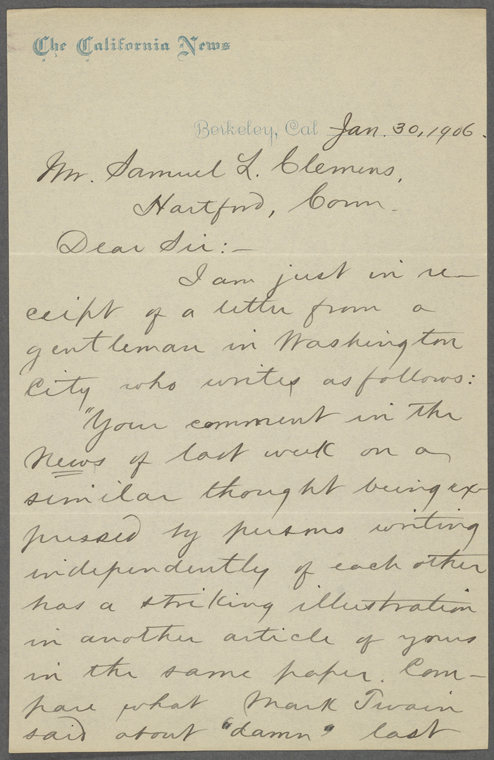 The California News
Berkeley, Cal Jan. 30, 1906.
Mr. Samuel L. Clemens,
Hartford, Conn.
Dear Sir:—
I am just in re-
ceipt of a letter from a
gentleman in Washington
City who writes as follows:
"Your comment in the
News of last week on a
similar thought being ex-
pressed by persons writing
independently of each other
has a striking illustration
in another article of yours
in the same paper. Com-
pare what Mark Twain
said about "damn" last